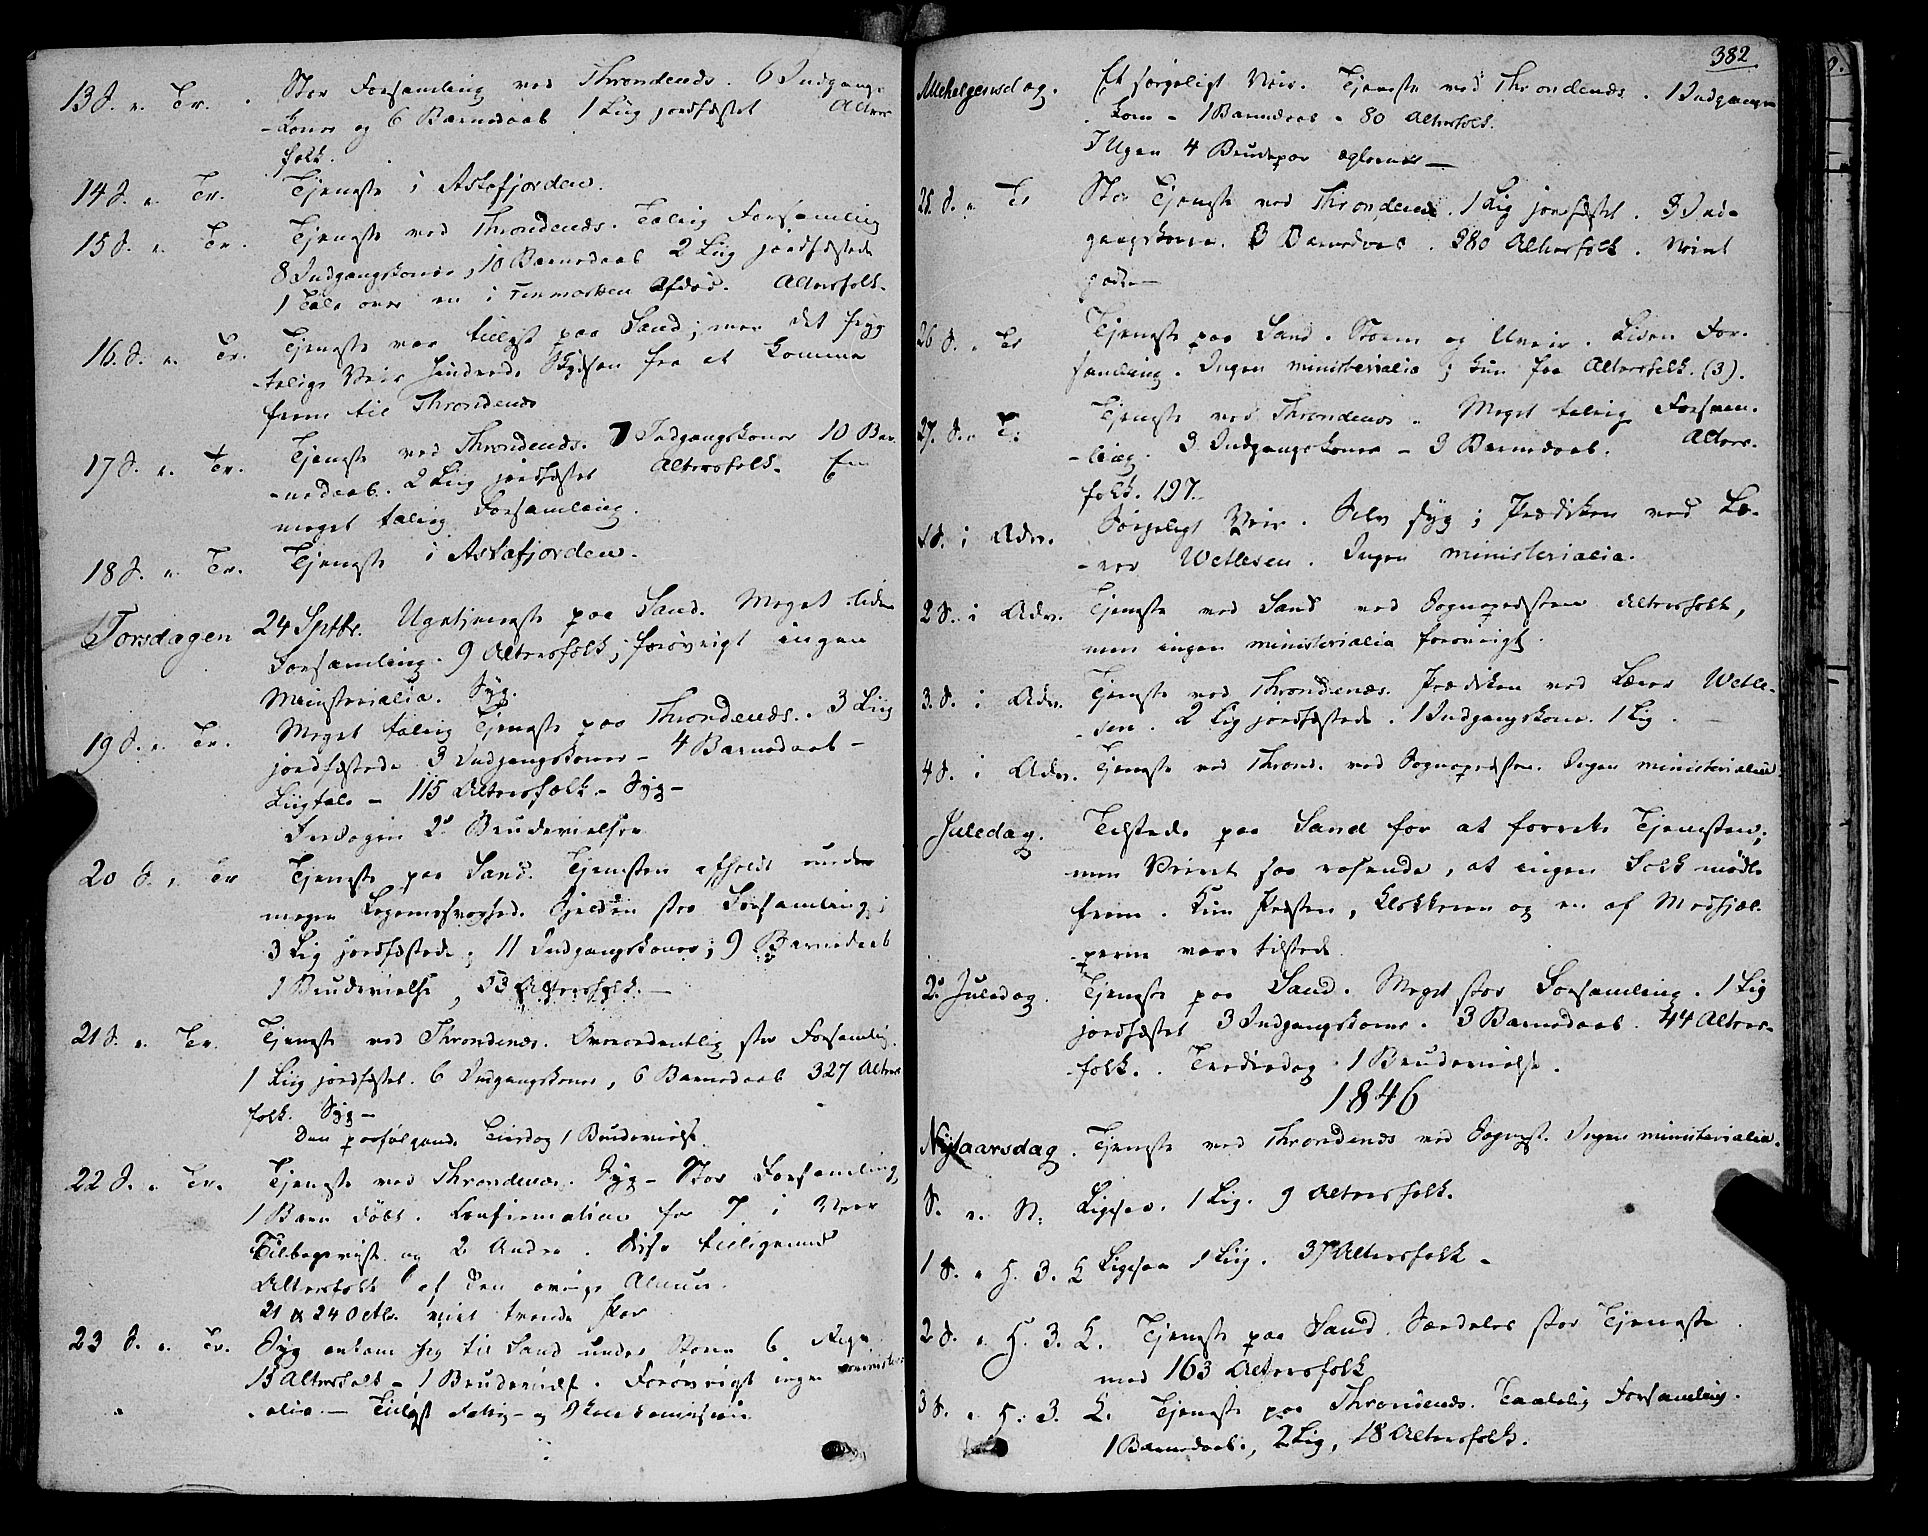 13 S. e. Tr. Stor Forsamling ved Throndenæs. 6 Indgangs-
-koner og 6 Barnedaab 1 Liig jordfæstet Alters
folk.
14 S. e. Tr. Tjeneste i Astafjorden.
15 S. e. Tr. Tjeneste ved Throndenæs. Talrig Forsamling
8 Indgangskoner, 10 Barnedaab 2 Liig jordfæstede
1 Tale over en i Finmarken Afdød. Altersfolk.
16. S. e. Tr. Tjeneste var tillyst paa Sand; men det
-telige Veir hindrede Skydsen fra at komme
frem til Throndenæs
17 S. e. Tr. Tjeneste ved Throndenæs. 7 Indgangskoner 10 Bar-
-nedaab. 2 Liig jordfæstet Altersfolk. En
meget talrig Forsamling.
18 S. e. Tr. Tjeneste i Astafjorden.
Torsdagen 24 Septbr. Ugetjeneste paa Sand. Meget liden
Forsamling. 9 Altersfolk; forøvrigt ingen
Ministerialia. Syg.
19 S. e. Tr. Meget talrig Tjeneste paa Throndenæs. 3 Liig
jordfæstede 3 Indgangskoner - 4 Barnedaab -
Liigtale - 115 Altersfolk - Syg -
2de Brudevielser
20 S. e. Tr Tjeneste paa Sand. Tjenesten afholdt under
megen Legemssvaghed. Sjelden stor Forsamling;
3 Lig jordfæstede; 11 Indgangskoner; 9 Barnedaab
1 Brudevielse, 53 Altersfolk. —
21 S. e. Tr. Tjeneste ved Throndenæs. Overordentlig stor Forsamling.
1 Liig jordfæstet. 6 Indgangskoner, 6 Barnedaab 327 Alters
folk. Syg -
Den paafølgende Tirsdag 1 Brudevielse.
22 S. e. Tr. Tjeneste ved Throndenæs. Syg - Stor Forsamling,
1 Barn døbt. Confirmation for 7 i Vaar
Tilbageviste og 2 Andre. Disse tilligemed
Altersfolk af den øvrige Almue.
21 & 24 Octbr. viet trende Par
23 S. e. Tr. Syg ankom jeg til Sand under Storm &
13 Altersfolk - 1 Brudevielse. Forøvrigt ingen ministeri
-alia. — Tillyst Fattig- og Skolekommission
382
Mickelgensdag. Et sørgeligt Veir. Tjeneste ved Throndenæs. 1 Indgangs
kone - 1 Barnedaab - 80 Altersfolk.
I Ugen 4 Brudepar —
25. S. e. Tr Stor Tjeneste ved Throndenæs. 1 Lig jordfæstet. 3 Ind-
gangskoner. 3 Barnedaab. 380 Altersfolk. Veiret
godt —
26 S. e. Tr Tjeneste paa Sand. Storm og Uveir. Liden For-
samling. Ingen ministerialia; kun faa Altersfolk. (3).
27. S. e. Tr Tjeneste ved Throndenæs. Meget talrig Forsam-
-ling. 3 Indgangskoner - 3 Barnedaab. Alters-
folk. 197.
1 S. i Adv. Sørgeligt Veir. Selv syg; Prædiken ved Læ-
-rer Wetlesen. Ingen ministerialia.
2 S. i Adv. Tjeneste ved Sand ved Sognepræsten Altersfolk,
men ingen ministerialia forøvrigt.
3. S. i Adv. Tjeneste ved Throndenæs. Prædiken ved Lærer Wetle-
-sen. 2 Lig jordfæstede. 1 Indgangskone. 1 Lig.
4 S. i Adv. Tjeneste ved Thrond. ved Sognepræsten. Ingen ministerialia.
Juledag. Tilstede paa Sand for at forrette Tjenesten;
men Veiret saa rasende, at ingen Folk mødte
frem. Kun Præsten, Klokkeren og en af Medhjæl-
-perne vare tilstede
2den Juledag. Tjeneste paa Sand. Meget stor Forsamling. 1 Lig
jordfæstet 3 Indgangskoner. 3 Barnedaab. 44 Alters-
-folk. Tredjedag 1 Brudevielse.
1846
Nytaarsdag. Tjeneste ved Throndenæs ved Sognepr. Ingen ministerialia.
S. e. N: Ligesaa. 1 Lig. 9 Altersfolk.
1 S. e. H. 3. K Ligesaa 1 Liig. 37 Altersfolk -
2 S. e. H. 3. K. Tjeneste paa Sand. Særdeles stor Tjeneste
med 163 Altersfolk
3 S. e. H. 3. K. Tjeneste paa Throndenæs. Taalelig Forsamling.
1 Barnedaab., 2 Lig, 18 Altersfolk.